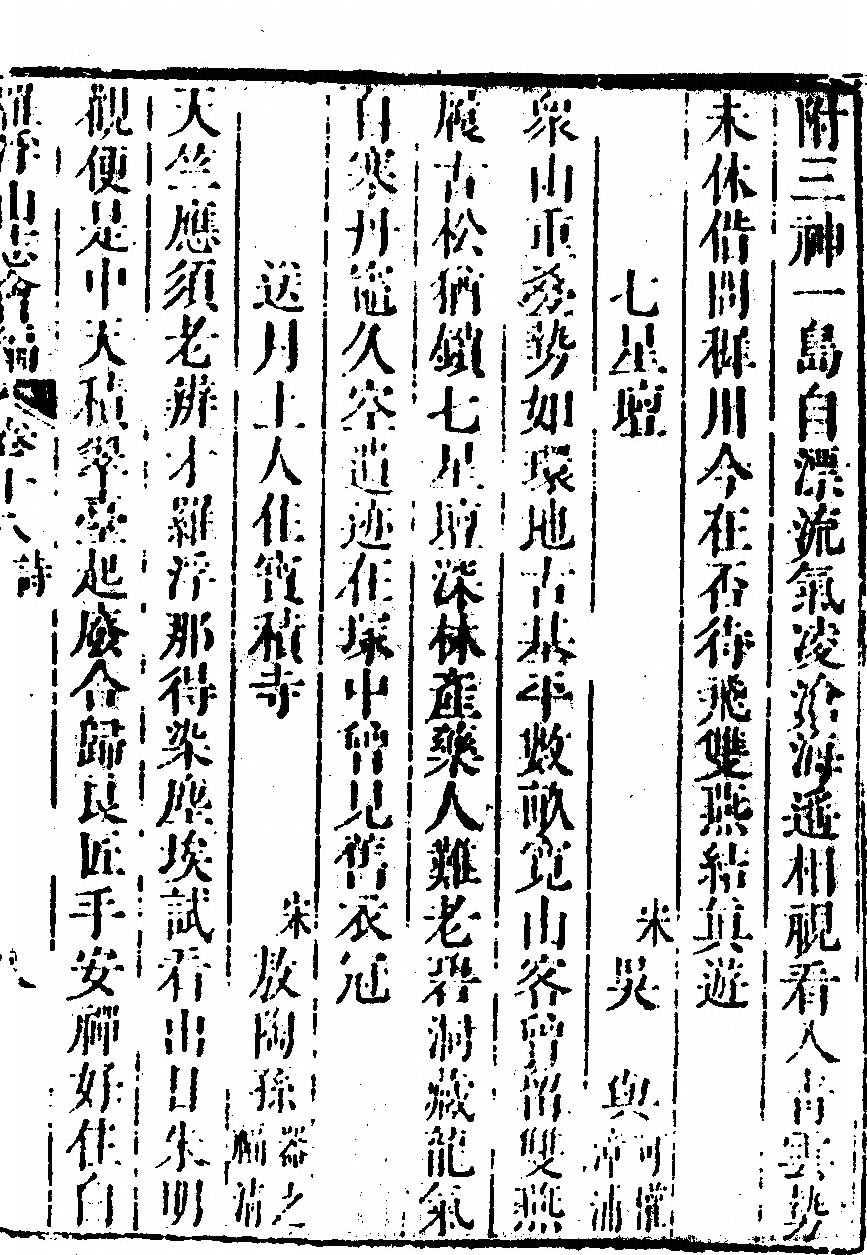 附三神一島自漂流氣凌滄海遥相視看人青雲勢
未休借問稚川今在否待飛雙燕結真遊
七星壇 宋吳與可權沖浦
衆山重勢如環地古基平數畝寛山客曾留雙燕
履古松猶鎖七星壇深林産藥人難老碧洞藏龍氣
自寒丹竈久空遺迹在塚中曾見舊衣冠
送月上人住寶積寺 宋敖陶孫器之
天竺應須老辨才羅浮那得染塵埃試看出日朱明
觀便是中天積翠臺起廢合歸良匠手安禪好住白
羅浮山志會編 卷十八 詩